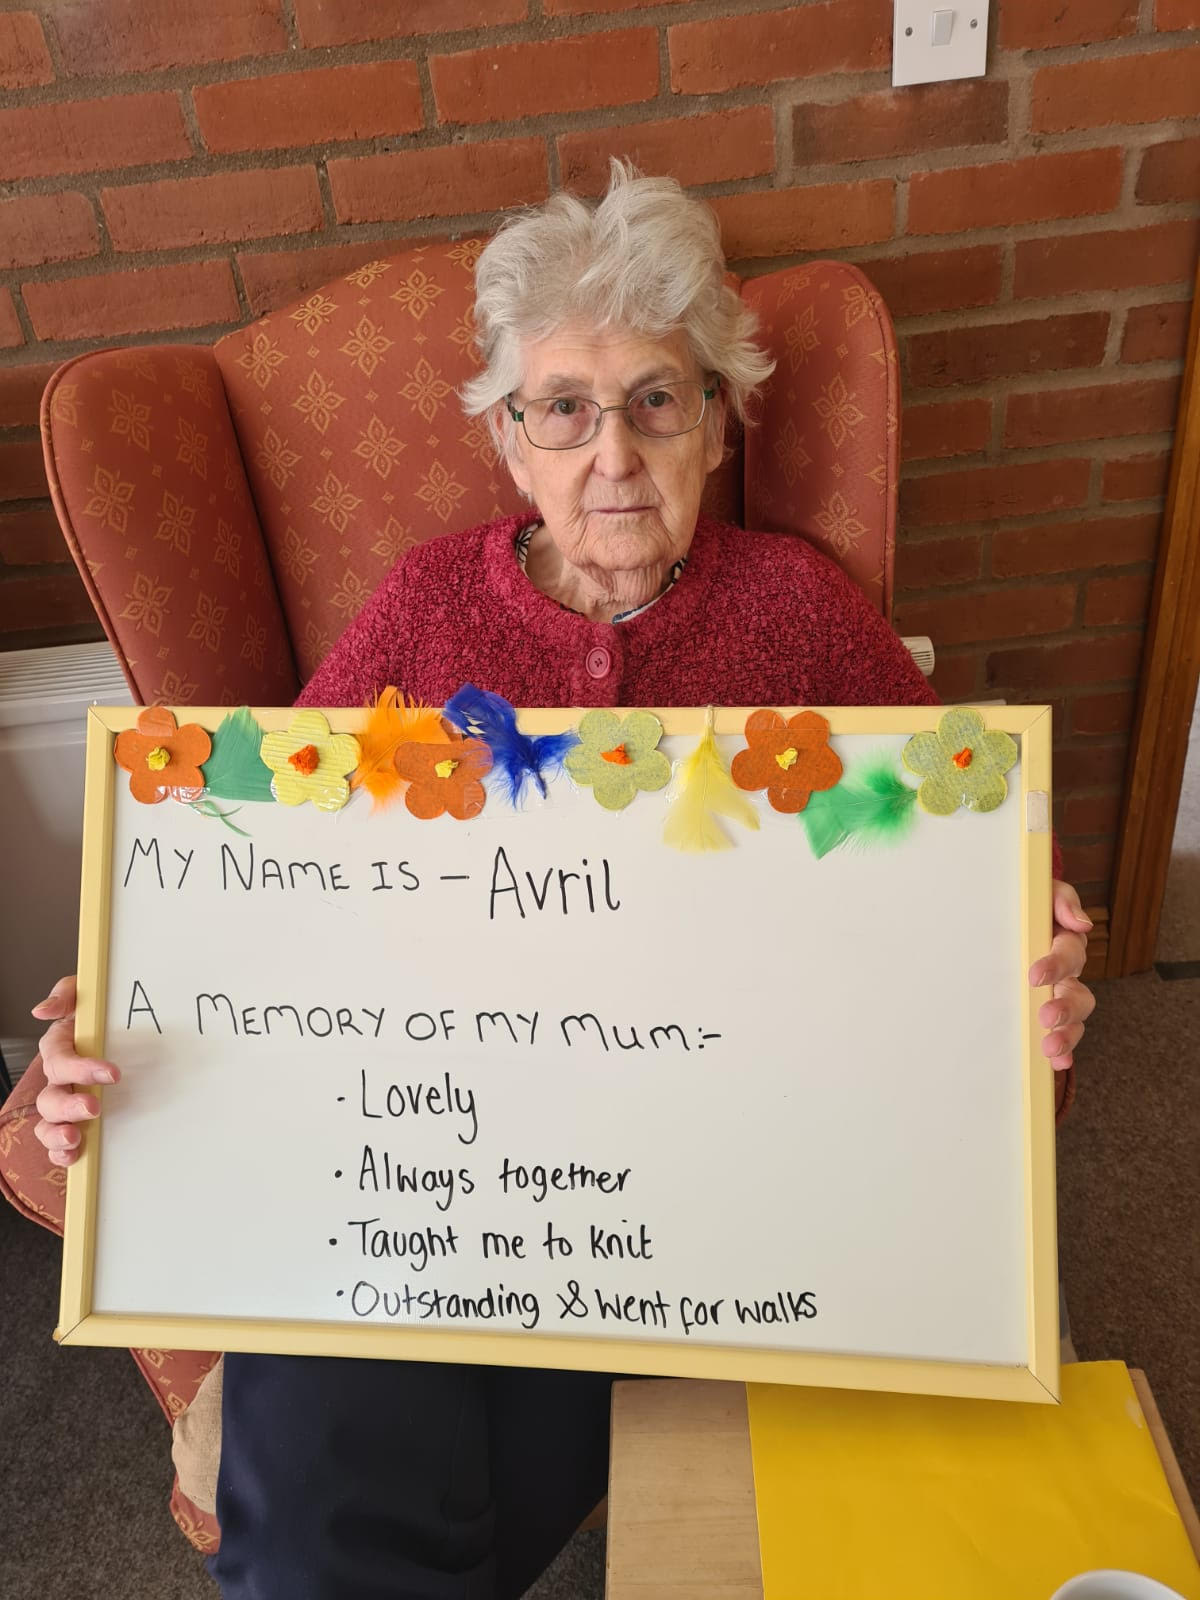 My Name is - Avril
A Memory of my Mum:-
· Lovely
· Always together
· Taught me to knit
· Outstanding & went for walks